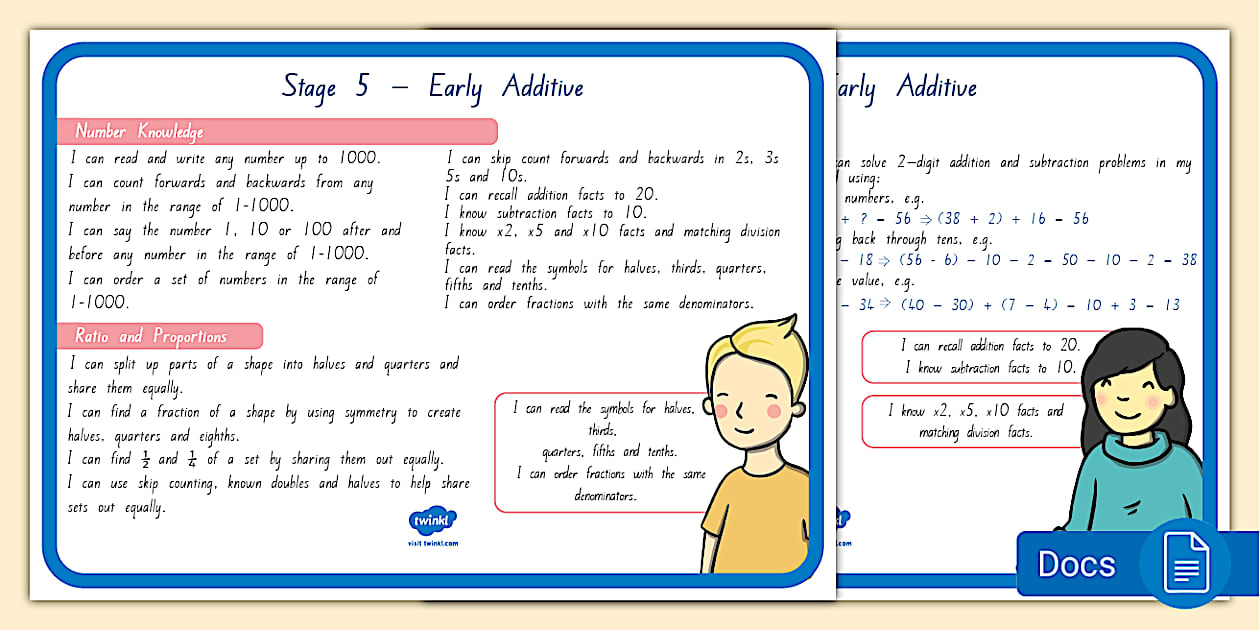 Stage 5 – Early Additive
Number Knowledge
I can read and write any number up to 1000.
I can count forwards and backwards from any
number in the range of 1-1000.
I can say the number 1, 10 or 100 after and
before any number in the range of 1-1000.
I can order a set of numbers in the range of
1-1000.
I can skip count forwards and backwards in 2s, 3s
5s and 10s.
I can recall addition facts to 20.
I know subtraction facts to 10.
I know x2, x5 and x10 facts and matching division
facts.
I can read the symbols for halves, thirds, quarters,
fifths and tenths.
I can order fractions with the same denominators.
Ratio and Proportions
I can split up parts of a shape into halves and quarters and
share them equally.
I can find a fraction of a shape by using symmetry to create
halves, quarters and eighths.
I can find 1/2 and 1/4 of a set by sharing them out equally.
I can use skip counting, known doubles and halves to help share
sets out equally.
I can read the symbols for halves,
thirds,
quarters, fifths and tenths.
I can order fractions with the same
denominators.
twinkl
visit twinkl.com
Early Additive
can solve 2-digit addition and subtraction problems in my
using:
numbers, e.g.
+ ? = 56 ⇒ (38 + 2) + 16 = 56
back through tens, e.g.
– 18 ⇒ (56 - 6) – 10 – 2 = 50 – 10 – 2 = 38
value, e.g.
– 34 ⇒ (40 – 30) + (7 – 4) = 10 + 3 = 13
I can recall addition facts to 20.
I know subtraction facts to 10.
I know x2, x5, x10 facts and
matching division facts.
Docs